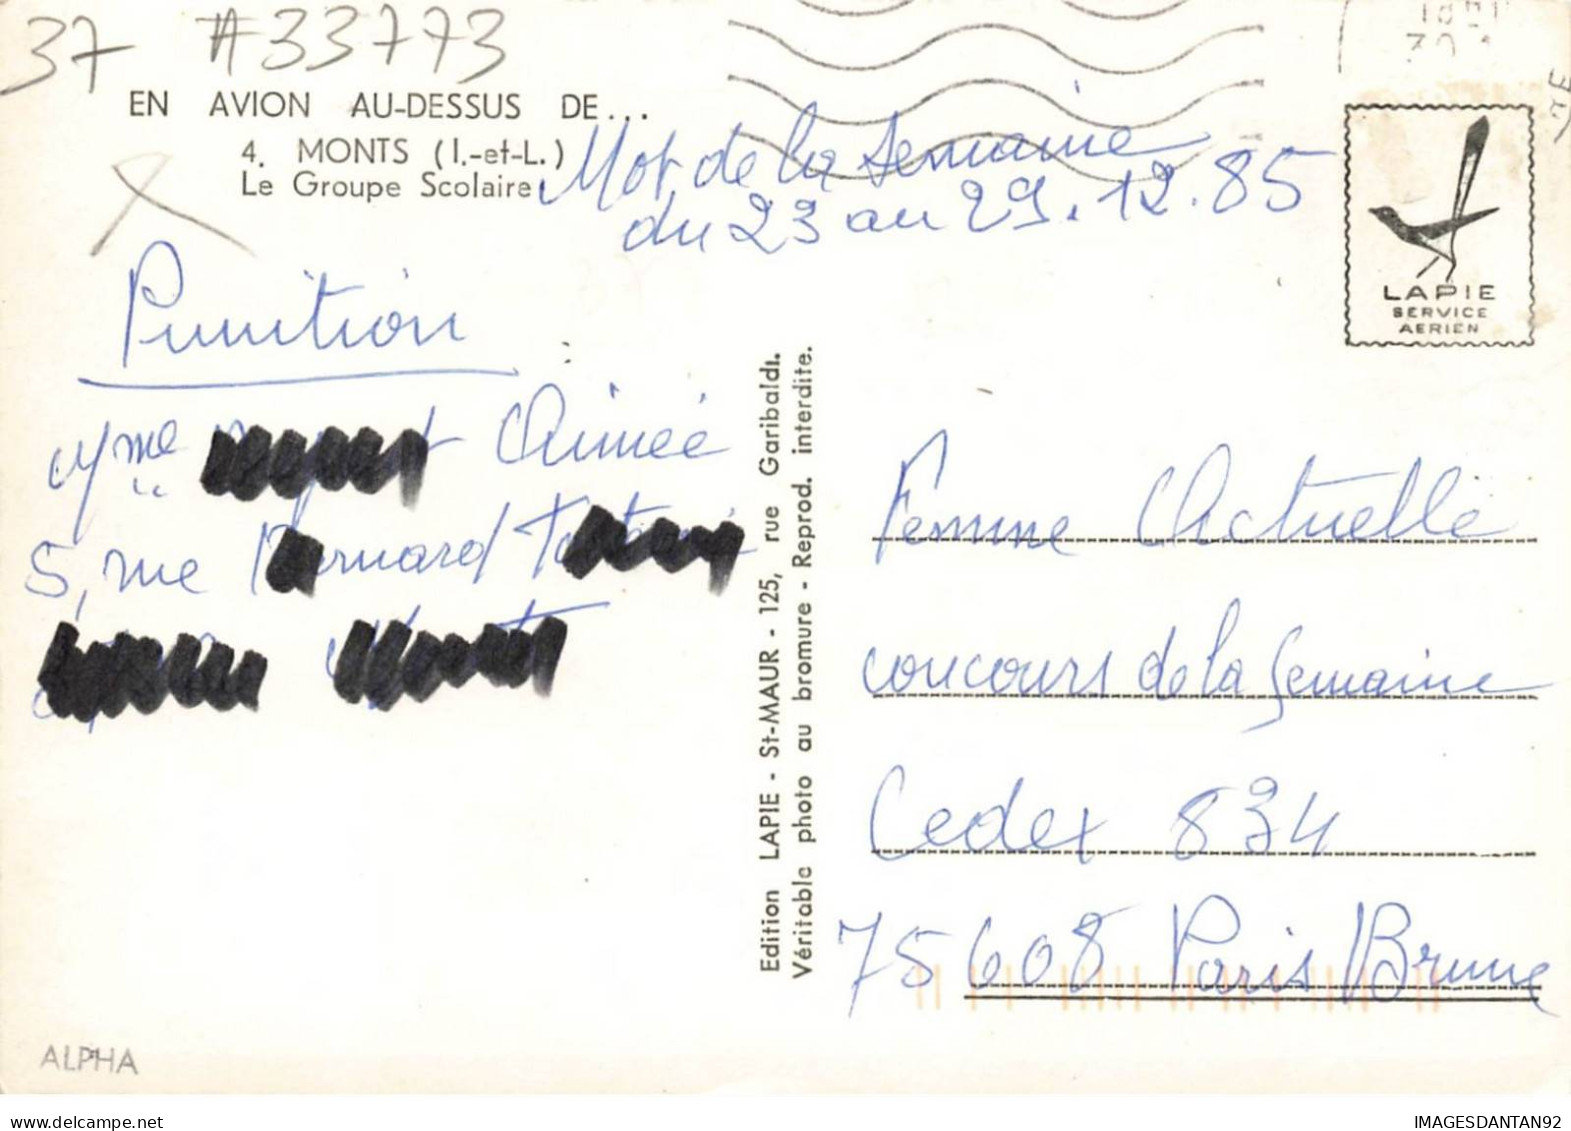 37 #33773
EN AVION AU-DESSUS DE...
4. MONTS (I.-et-L.)
Le Groupe Scolaire
Mot de la semaine
du 23 au 29.12.85
LAPIE
SERVICE
AERIEN
Punition
Mme Aimée
5, rue
Edition LAPIE - St-MAUR - 125, rue Garibaldi.
Véritable photo au bromure - Reprod. interdite.
Femme Actuelle
concours de la semaine
Cedex 834
75608 Paris Brune
ALPHA
IMAGESDANTAN92